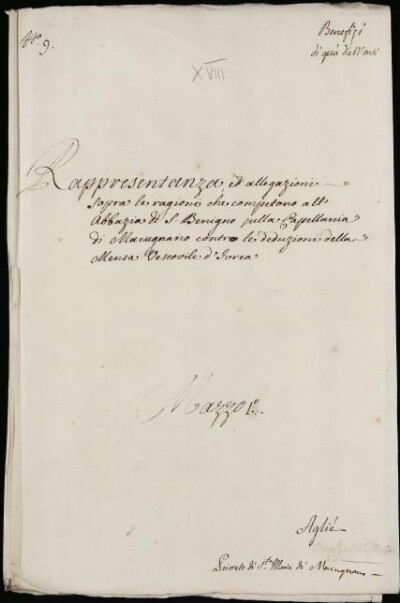 N.º 9.
Benefizj
di quà da Monti
XVIII
Rappresentanza ed allegazioni
sopra le ragioni che competono all'
Abbazia di S. Benigno sulla Cappellania
di Macugnano contro le deduzioni della
Mensa Vescovile d'Ivrea
Mazzo 1.º
Agliè
Priorato di S.ta Maria di Macugnano